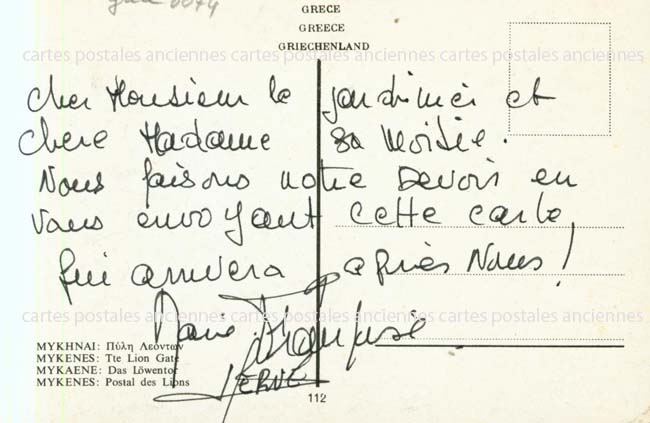 GRECE
GREECE
GRIECHENLAND
cartes postales anciennes cartes postales anciennes cartes postales anciennes
cher Monsieur le jardinier et
chere Madame sa moitié.
Nous faisons notre Devoir en
vous envoyant cette carte,
qui arrivera après Nous!
cartes postales anciennes cartes postales anciennes cartes postales anciennes
Marie Françoise
HERVE
ΜΥΚΗΝΑΙ: Πύλη Λεόντων
MYKENES: Tte Lion Gate
MYKAENE: Das Löwentor
MYKENES: Postal des Lions
112